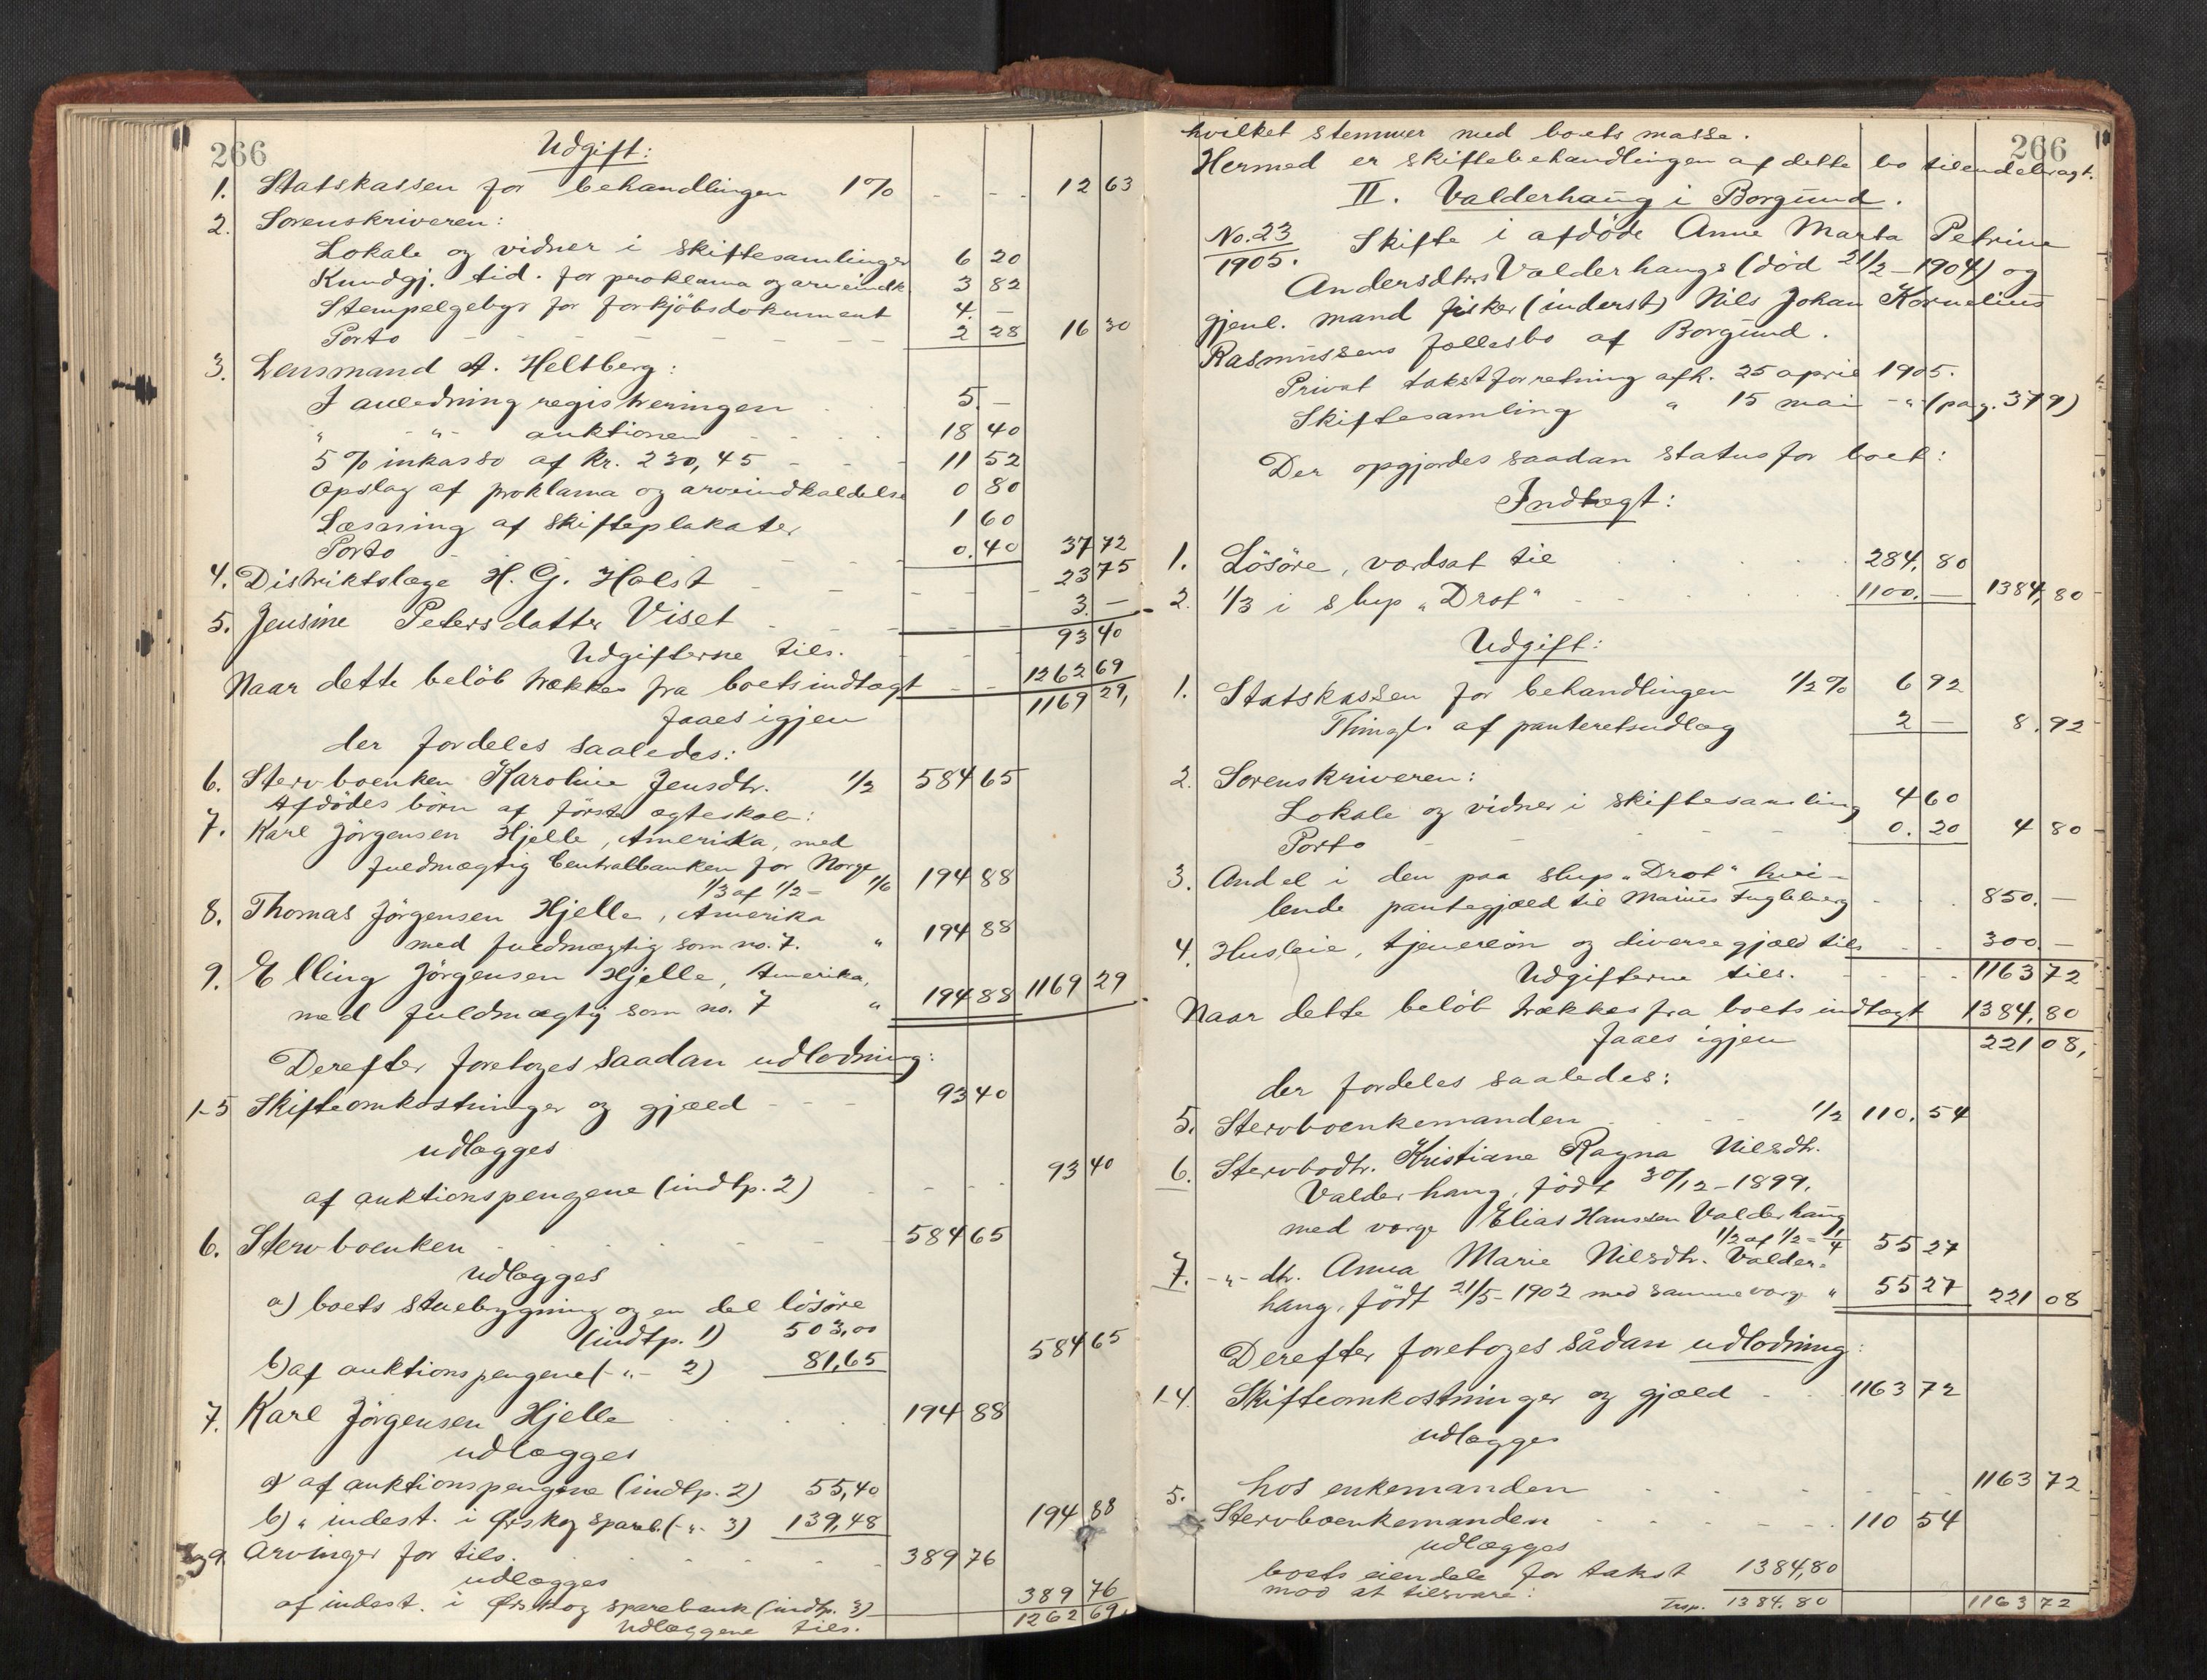 266
Udgift:
1. Statskassen for behandlingen 1% 12 63
2. Sorenskriveren:
Lokale og vidner i skiftesamlinger 6 20
Kundgj. tid. for proklama og arveindk. 3 82
Stempelgebyr for forkjöbsdokument 4. —
Porto 2 28 16 30
3. Lensmand A. Heltberg:
I anledning registreringen 5. —
„ -„- auktionen 18 40
5% inkasso af kr. 230,45 11 52
Opslag af proklama og arveindkaldelse 0 80
Læsning af skifteplakater 1 60
Porto 0.40 37 72
4. Distriktslæge H. G. Holst 23 75
5. Jensine Petersdatter Viset 3. —
Udgifterne tils. 93 40
Naar dette belöb trækkes fra boets indtægt 1262 69
faaes igjen 1169 29,
der fordeles saaledes:
6. Stervboenken Karoline Jensdtr. 1/2 584 65
Afdödes börn af förste ægteskab:
7. Karl Jörgensen Hjelle, Amerika, med
fuldmægtig Centralbanken for Norge
1/3 af 1/2 = 1/6 194 88
8. Thomas Jörgensen Hjelle, Amerika
med fuldmægtig som no. 7. „ 194 88
9. Elling Jörgensen Hjelle, Amerika,
med fuldmægtig som no. 7 „ 194 88 1169 29
Derefter foretoges saadan udlodning:
1-5 Skifteomkostninger og gjæld 93 40
udlægges
af auktionspengene (indtp. 2) 93 40
6. Stervboenken 584 65
udlægges
a) boets stuebygning og en del lösöre
(indtp. 1) 503,00
b) af auktionspengene (-„- 2) 81,65 584 65
7. Karl Jörgensen Hjelle 194 88
udlægges
a) af auktionspengene (indtp. 2) 55,40
b) „ indest. i Ørskog spareb. (-„- 3) 139,48 194 88
9 Arvinger for tils. 389 76
udlægges
af indest. i Ørskog sparebank (indtp. 3) 389 76
Udlæggene tils. 1262 69,
266
hvilket stemmer med boets masse.
Hermed er skiftebehandlingen af dette bo tilendebragt.
II. Valderhaug i Borgund.
No. 23
1905. Skifte i afdöde Anne Marta Petrine
Andersdtrs Valderhaugs (död 21/2-1904) og
gjenl. mand fisker (inderst) Nils Johan Kornelius
Rasmussens fællesbo af Borgund.
Privat takstforretning afh. 25 april 1905.
Skiftesamling „ 15 mai -„- (pag. 379)
Der opgjordes saadan status for boet:
Indtægt:
1. Lösöre, vurdsat til 284. 80
2. 1/3 i slup „Drot“ 1100. — 1384, 80
Udgift:
1. Statskassen for behandlingen 1/2% 6 92
Thingl. af panteretsudlæg 2 — 8. 92
2. Sorenskriveren:
Lokale og vidner i skiftesamling 4 60
Porto 0. 20 4 80
3. Andel i den paa slup „Drot“ hvi-
lende pantegjæld til Marius Fugleberg 850. —
4. Husleie, tjenerlön og diverse gjæld tils 300. —
Udgifterne tils. 1163 72
Naar dette belöb trækkes fra boets indtægt 1384, 80
faaes igjen 221 08,
der fordeles saaledes:
5. Stervboenkemanden 1/2 110. 54
6. Stervbodtr. Kristiane Ragna Nilsdtr.
Valderhaug, födt 30/12-1899,
med værge Elias Hanssen Valderhaug
1/2 af 1/2 = 1/4 55 27
7. -„- dtr. Anna Marie Nilsdtr. Valder-
haug, födt 21/5-1902 med samme værge „ 55 27 221 08
Derefter foretoges sådan udlodning:
1-4. Skifteomkostninger og gjæld 1163 72
udlægges
hos enkemanden 1163 72
5. Stervboenkemanden 110 54
udlægges
boets eiendele for takst 1384,80
mod at tilsvare:
Trsp. 1384.80 1163 72